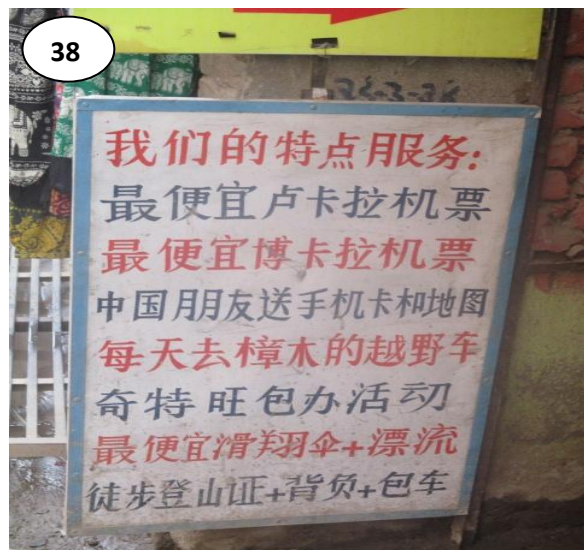 38
我们的特点服务:
最便宜卢卡拉机票
最便宜博卡拉机票
中国朋友送手机卡和地图
每天去樟木的越野车
奇特旺包办活动
最便宜滑翔伞+漂流
徒步登山证+背负+包车